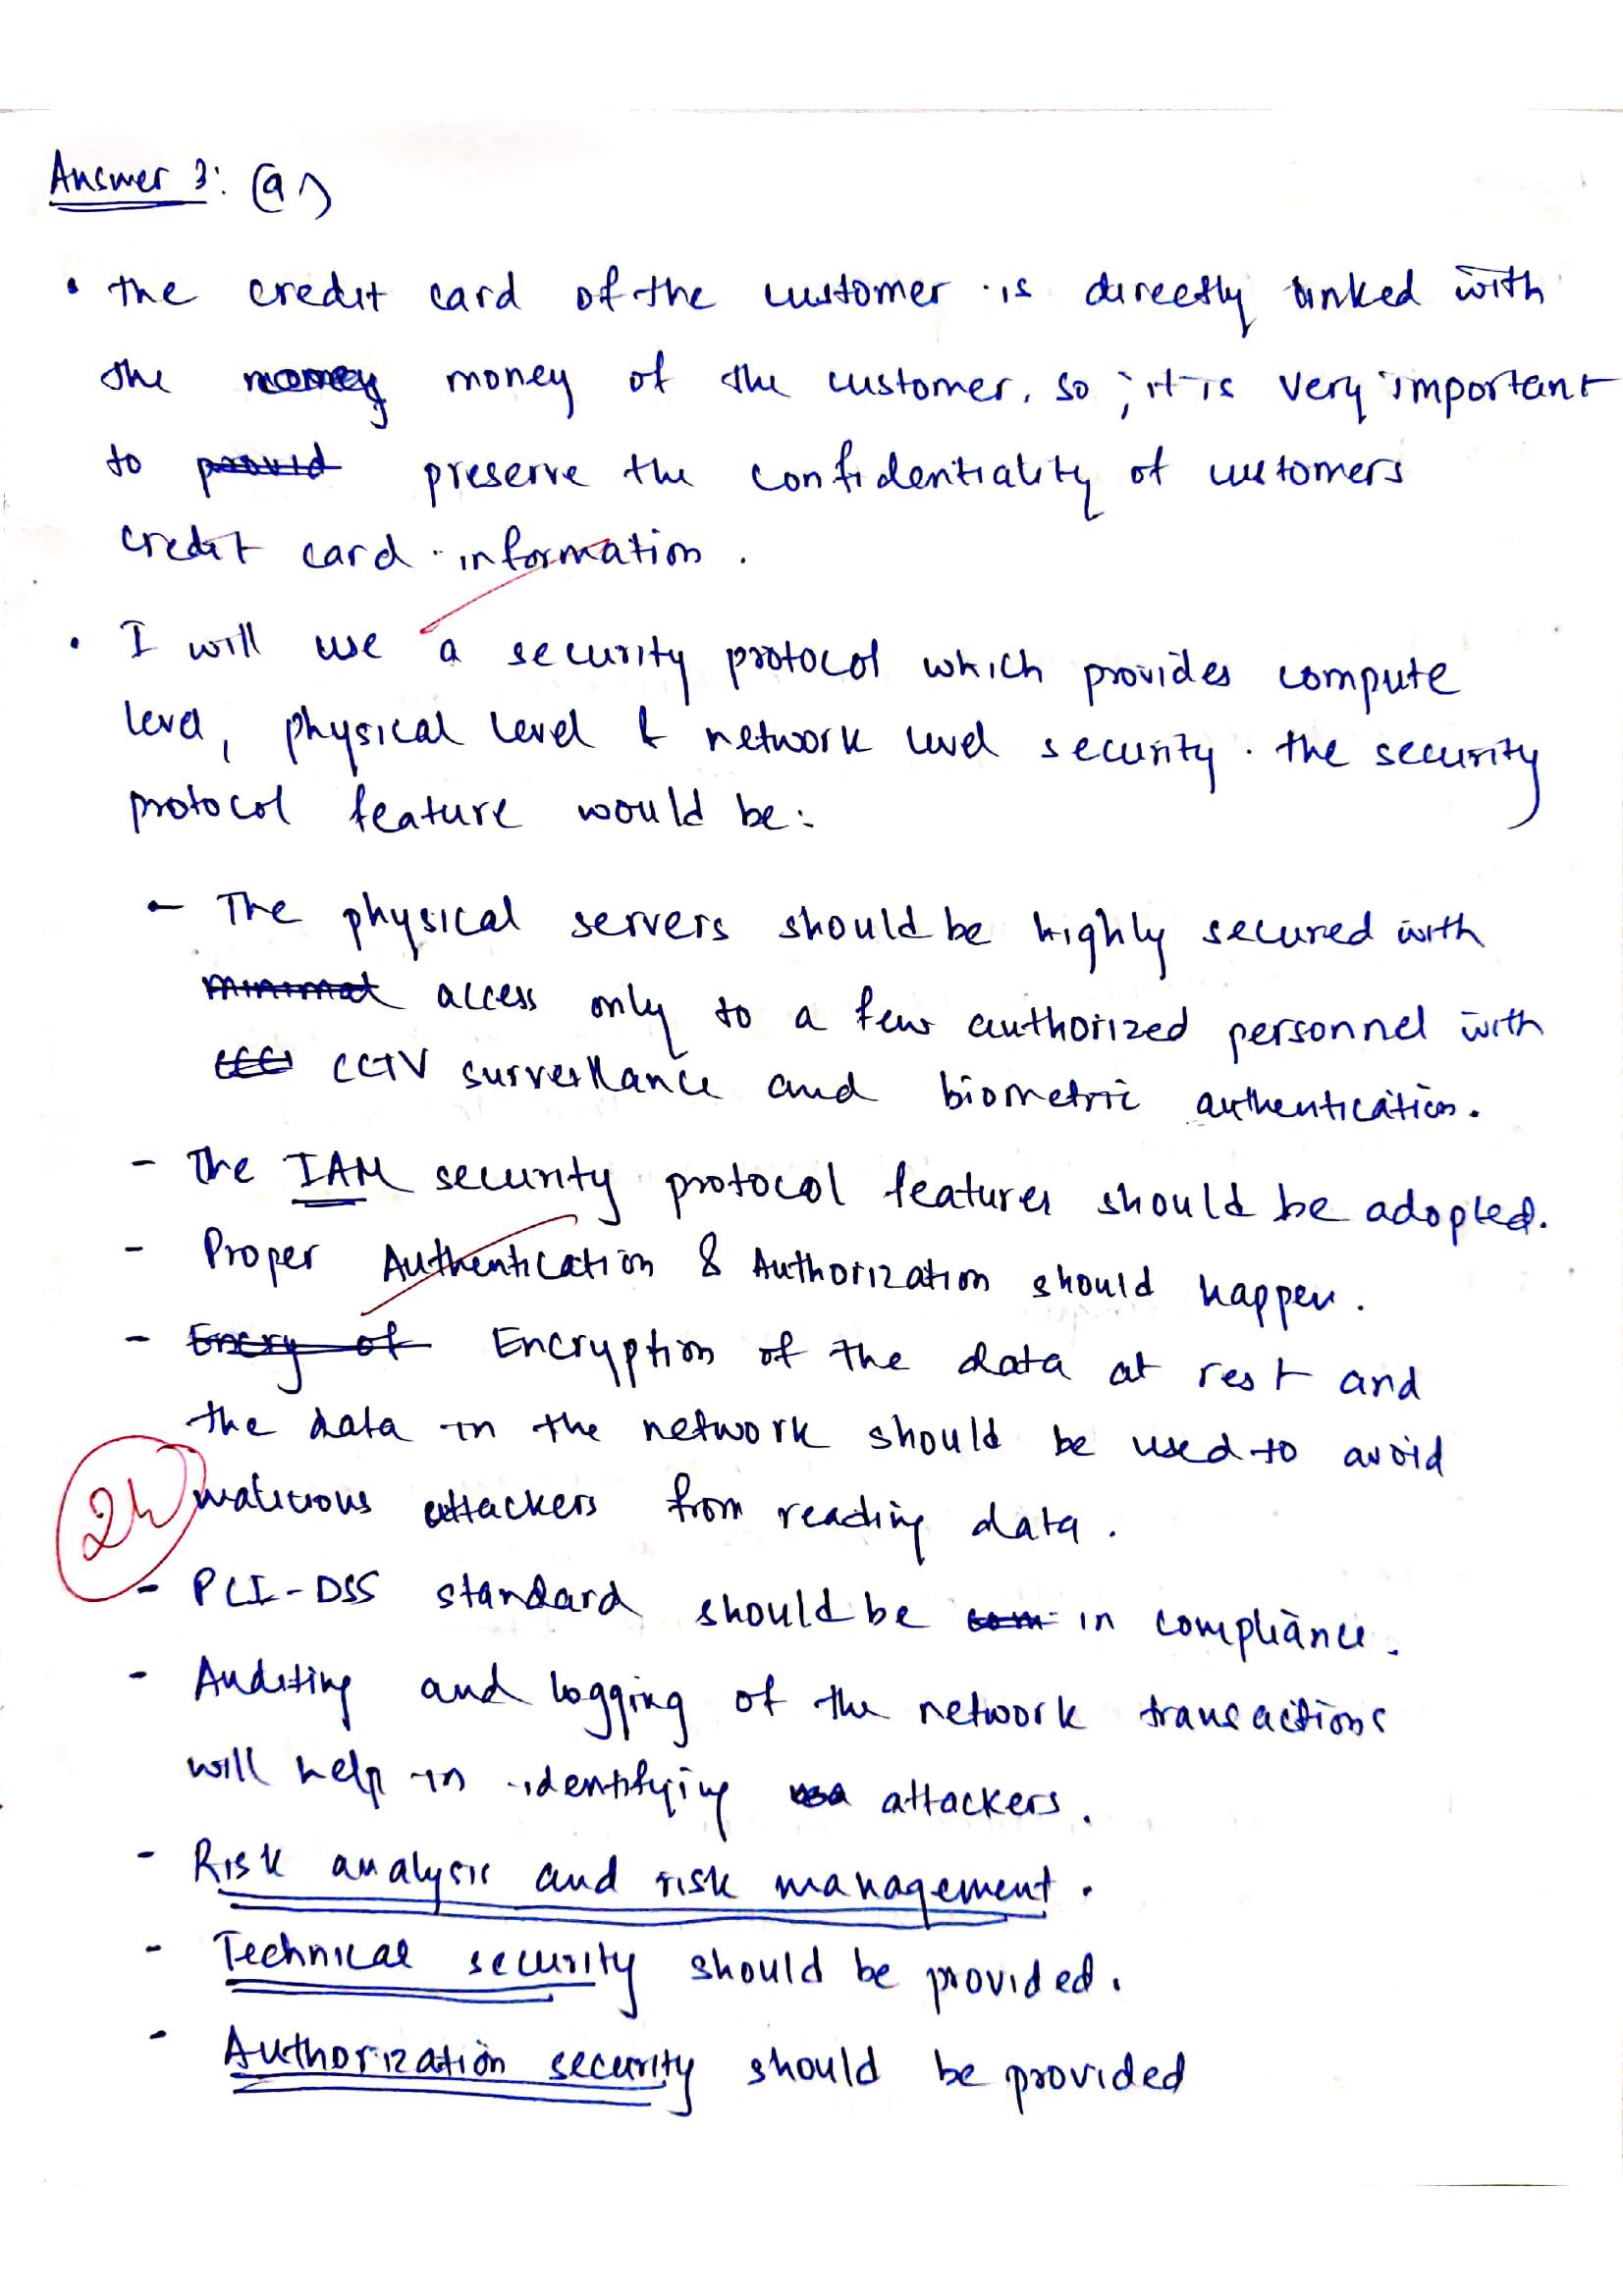 Answer 3: (a)
• the credit card of the customer is directly linked with
the money money of the customer. so, it is very important
to provid preserve the confidentiality of customers
credit card information.
• I will use a security protocol which provides compute
level, physical level & network level security. the security
protocol feature would be:
- The physical servers should be highly secured with
minimal access only to a few authorized personnel with
CCTV surveillance and biometric authentication.
- The IAM security protocol features should be adopted.
- Proper Authentication & Authorization should happen.
- Encry of Encryption of the data at rest and
the data in the network should be used to avoid
malicious attackers from reading data.
- PCI-DSS standard should be com in compliance.
- Auditing and logging of the network transactions
will help in identifying attackers.
- Risk analysis and risk management.
- Technical security should be provided.
- Authorization security should be provided